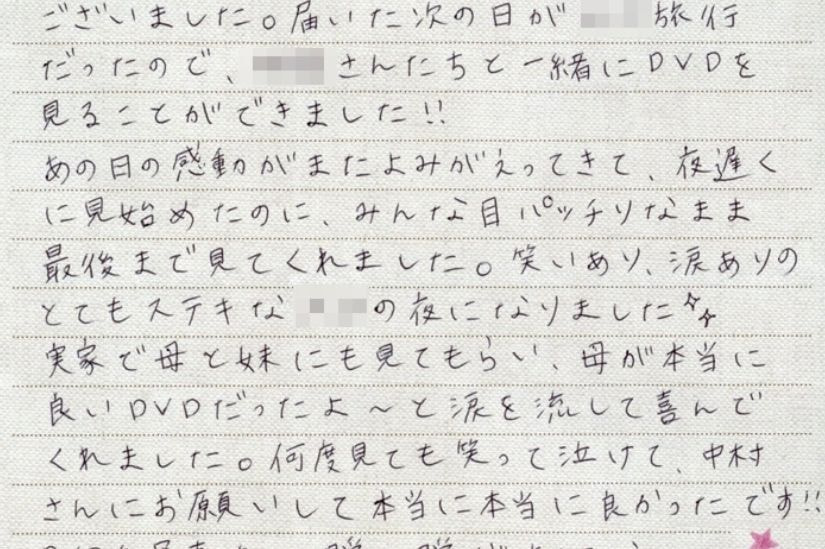 ございました。届いた次の日が 旅行
だったので、 さんたちと一緒にDVDを
見ることができました!!
あの日の感動がまたよみがえってきて、夜遅く
に見始めたのに、みんな目パッチリなまま
最後まで見てくれました。笑いあり、涙ありの
とてもステキな の夜になりました
実家で母と妹にも見てもらい、母が本当に
良いDVDだったよ〜と涙を流して喜んで
くれました。何度見ても笑って泣けて、中村
さんにお願いして本当に本当に良かったです!!